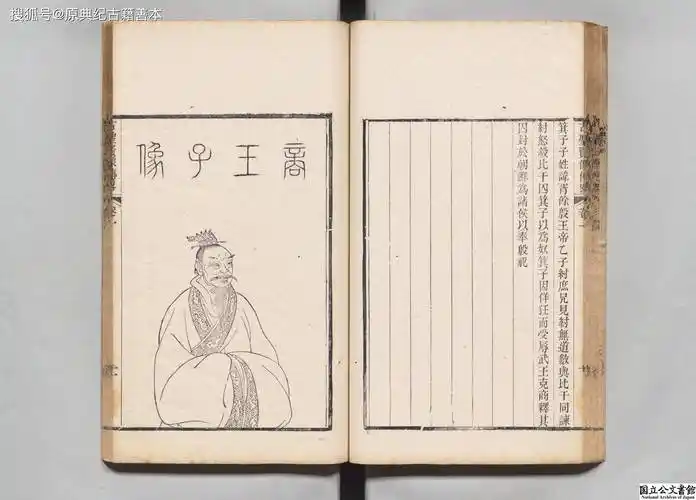 搜狐号@原典纪古籍善本
箕子子姓諱胥餘殷王帝乙子紂庶兄見紂無道數與比干同諫
紂怒殺比干囚箕子以為奴箕子因佯狂而受辱武王克商釋其
囚封於朝鮮為諸侯以奉殷祀
商王子像
国立公文書館
National Archives of Japan